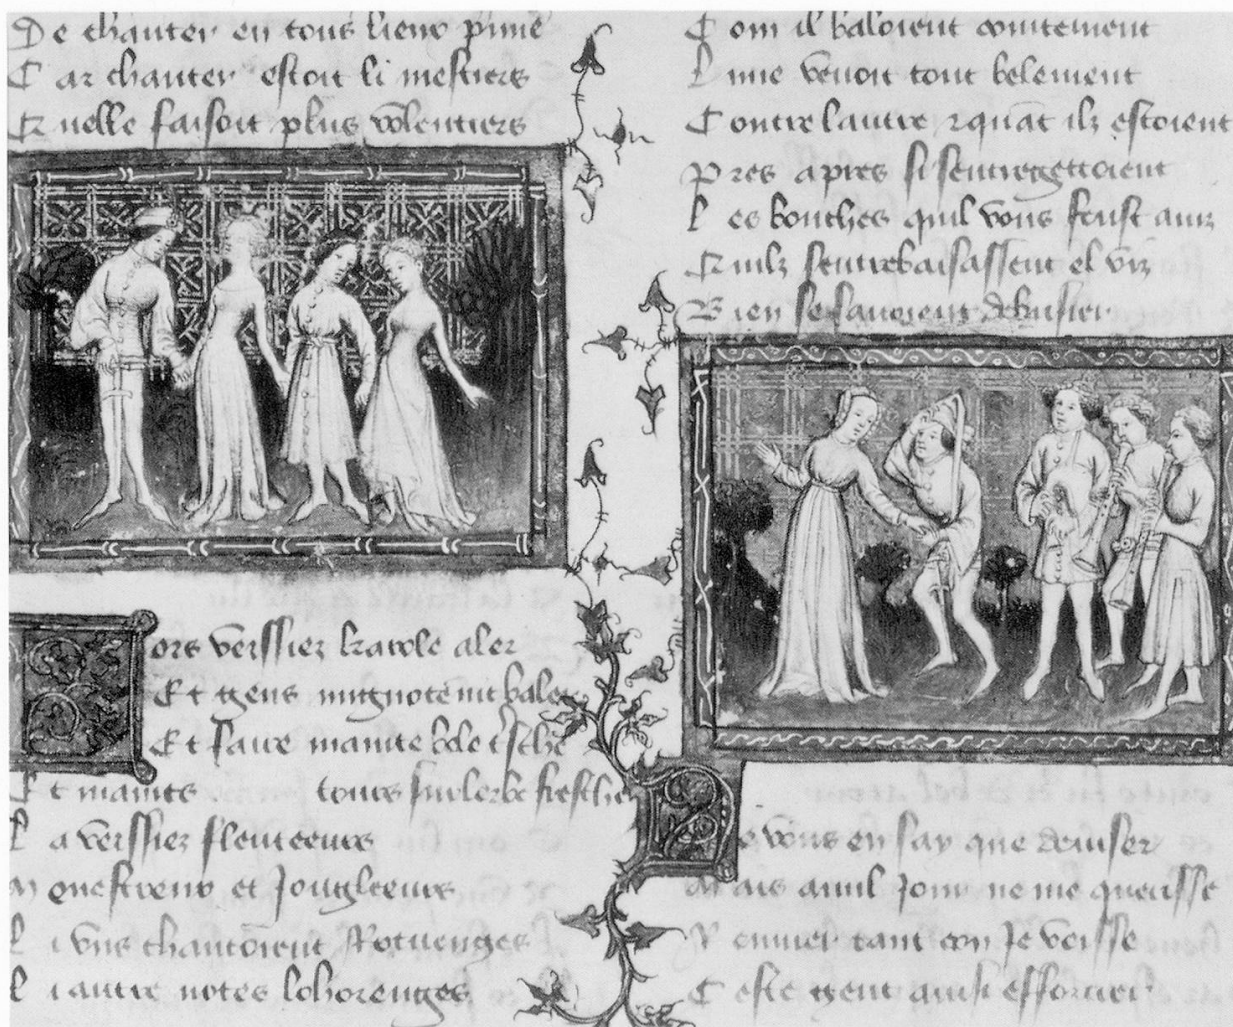 De chanter en tous lieux pime
Car chanter estoit li mestiers
Quelle faisoit plus volentiers
Lors verssiez karole aler
Et gens mignotemt baler
Et faire mainte bele tsche
Et maintes tours sus lerbe fresche
La verssiez fleuteeurs
Menestreux et Jougleeurs
Li uns chantoient Rotuenges
Li autre notes lohorenges
Com il baloient cointement
Lune venoit tout belement
Contre lautre & quāt ilz estoient
Pres apres si sentregettoient
Les bouches quil vous fust auiz
Quilz sentrebaisassent el viz
Bien se sauoient debrisier
Ne vous en say que deuiser
Mais a nul Jour ne me queisse
Remuer tant con Je veisse
Ceste gent ainsi efforcier